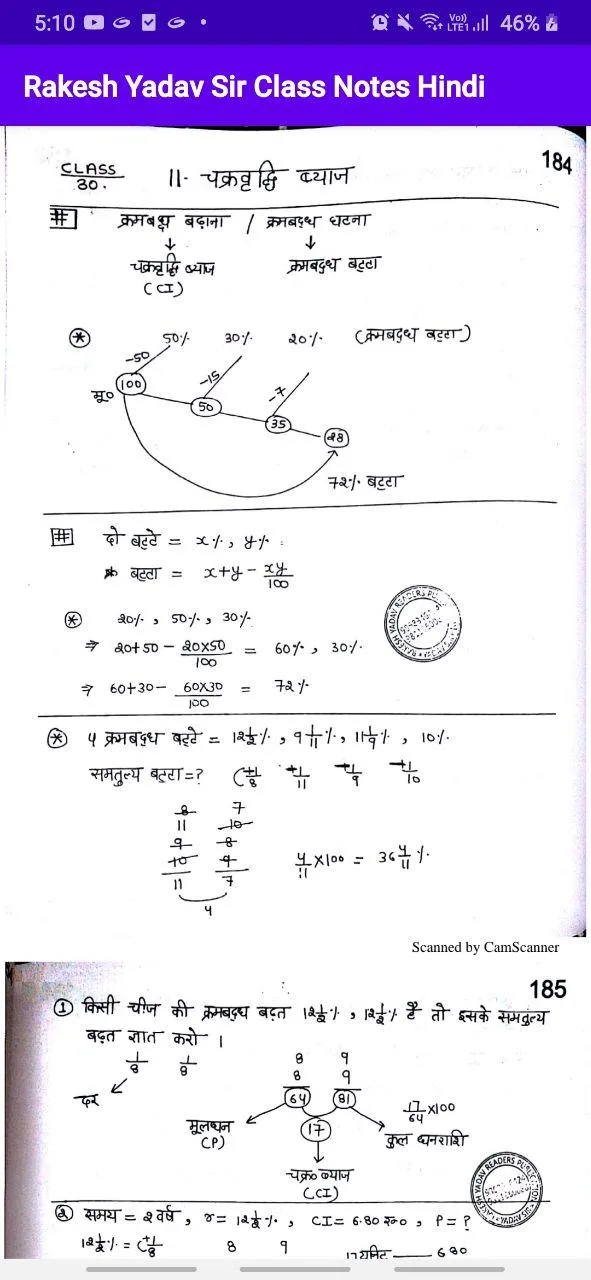 5:10
Vo)) LTE1 46%
Rakesh Yadav Sir Class Notes Hindi
184
CLASS 30. 11. चक्रवृद्धि ब्याज
# क्रमबद्ध बढ़ाना / क्रमबद्ध घटना
↓ ↓
चक्रवृद्धि ब्याज क्रमबद्ध बट्टा
(CI)
* 50% 30% 20% (क्रमबद्ध बट्टा)
-50 -15 -7
मू० 100 50 35 28
72% बट्टा
# दो बट्टे = x%, y%
* बट्टा = x+y - xy/100
* 20%, 50%, 30%
⇒ 20+50 - 20×50/100 = 60%, 30%
⇒ 60+30 - 60×30/100 = 72%
* 4 क्रमबद्ध बट्टे = 12 1/2%, 9 1/11%, 11 1/9%, 10%
समतुल्य बट्टा = ? +1/8 +1/11 +1/9 +1/10
8 7
11 10
9 8
10 9
11 7 4/11 × 100 = 36 4/11%
4
Scanned by CamScanner
185
① किसी चीज की क्रमबद्ध बढ़त 12 1/2%, 12 1/2% है तो इसके समतुल्य
बढ़त ज्ञात करो ।
1/8 1/8 8 9
दर 8 9
64 81 17/64 × 100
मूलधन (P) 17 कुल धनराशि
चक्र० ब्याज
(CI)
② समय = 2 वर्ष, r = 12 1/2%, CI = 6.80 रू०, P = ?
12 1/2% = +1/8 8 9 17 यूनिट — 680